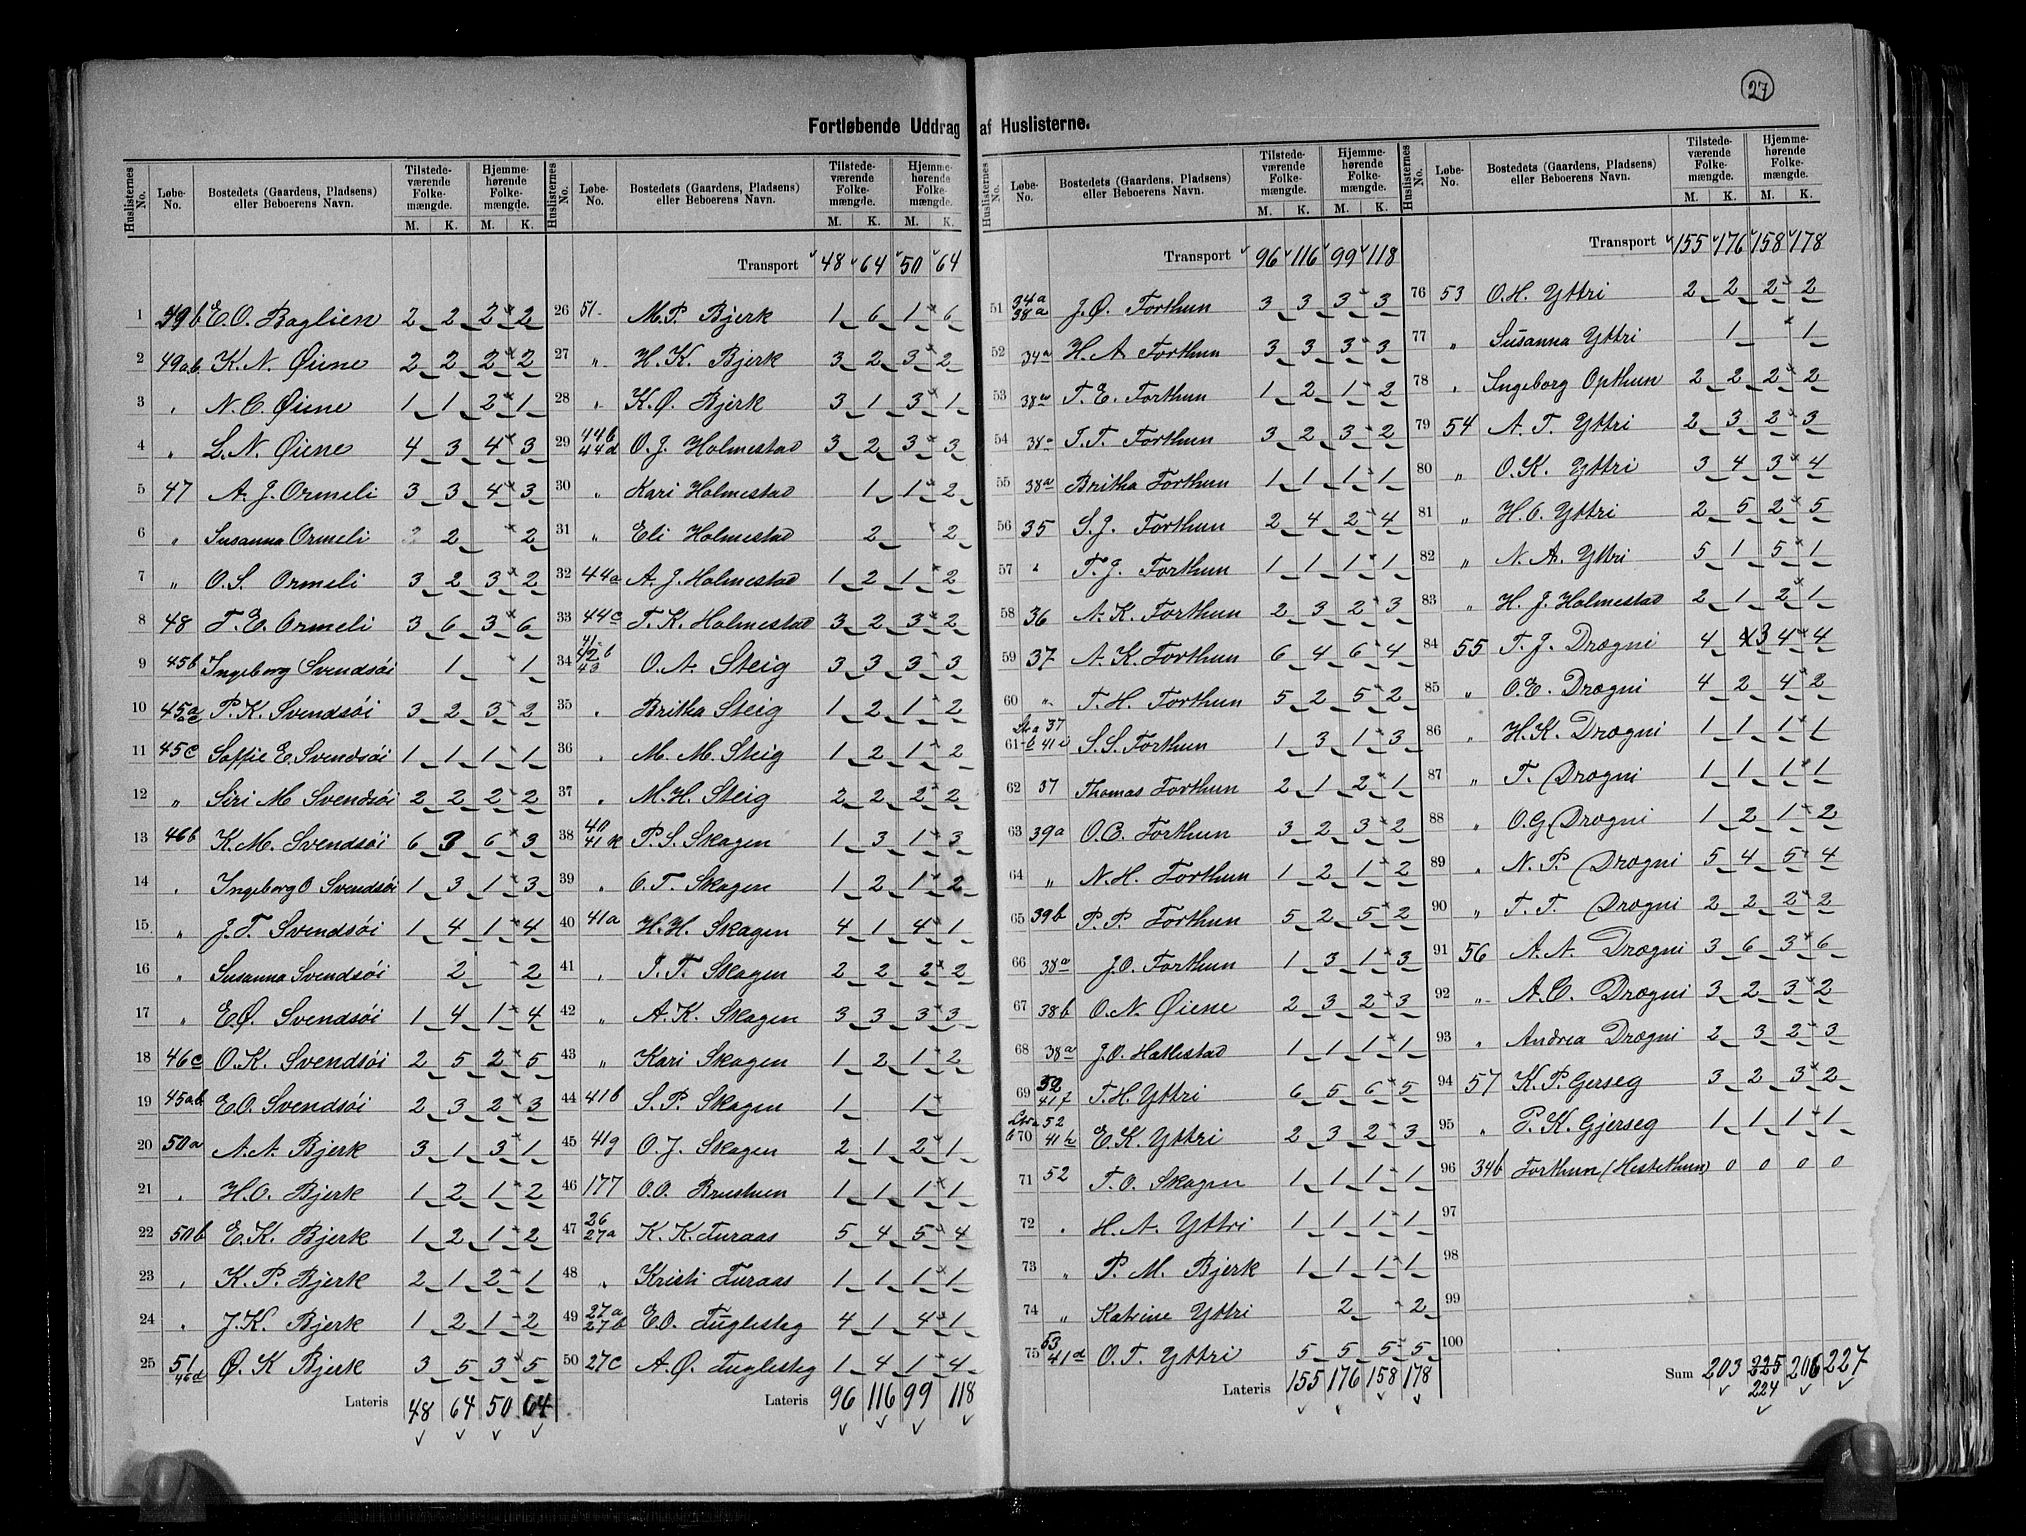 27
Fortløbende Uddrag af Huslisterne.
Huslisternes No. Løbe-No. Bostedets (Gaardens, Pladsens) eller Beboerens Navn. Tilstedeværende Folkemængde. M. K. Hjemmehørende Folkemængde. M. K.
1 49b E.O. Baglien 2 2 2 2
2 49a.b. K. N. Øiene 2 2 2 2
3 " N. O. Øine 1 1 2 1
4 " L. N. Øiene 4 3 4 3
5 47 A. J. Ormeli 3 3 4 3
6 " Susanna Ormeli 2 2
7 " O. S. Ormeli 3 2 3 2
8 48 T. E. Ormeli 3 6 3 6
9 45b Ingeborg Svendsøi 1 1
10 45a P. K. Svendsøi 3 2 3 2
11 45c Soffie E. Svendsøi 1 1 1 1
12 " Siri M. Svendsøi 2 2 2 2
13 46b K. M. Svendsøi 6 3 6 3
14 " Ingeborg O Svendsøi 1 3 1 3
15 " J. T. Svendsøi 1 4 1 4
16 " Susanna Svendsøi 2 2
17 " E.Ø. Svendsøi 1 4 1 4
18 46c O. K. Svendsøi 2 5 2 5
19 45a.b E.O. Svendsøi 2 3 2 3
20 50a A. A. Bjerk 3 1 3 1
21 " H. O. Bjerk 1 2 1 2
22 50b E. K. Bjerk 1 2 1 2
23 " K. P. Bjerk 2 1 2 1
24 " J. K. Bjerk 1 2 1 2
25 51 46d Ø. K Bjerk 3 5 3 5
Lateris 48 64 50 64
Huslisternes No. Løbe-No. Bostedets (Gaardens, Pladsens) eller Beboerens Navn. Tilstedeværende Folkemængde. M. K. Hjemmehørende Folkemængde. M. K.
Transport 48 64 50 64
26 51 M. P. Bjerk 1 6 1 6
27 " H. K. Bjerk 3 2 3 2
28 " K. Ø. Bjerk 3 1 3 1
29 44b 44d O. J. Holmestad 3 2 3 3
30 " Kari Holmestad 1 1 2
31 " Eli Holmestad 2 2
32 44a A. J. Holmestad 1 2 1 2
33 44c T. K. Holmestad 3 2 3 2
34 41- 42b 43 O. A. Steig 3 3 3 3
35 " Britha Steig 1 2 1 2
36 " M. M. Steig 1 2 1 2
37 " M. H. Steig 2 2 2 2
38 40 41k P. S. Skagen 1 3 1 3
39 " O. T. Skagen 1 2 1 2
40 41a H. H. Skagen 4 1 4 1
41 " T. T. Skagen 2 2 2 2
42 " A. K. Skagen 3 3 3 3
43 " Kari Skagen 1 2 1 2
44 41b S. P. Skagen 1 1
45 41g O. J. Skagen 2 1 2 1
46 177 O. O. Brusteen 1 1 1 1
47 26 27a K. K. Furaas 5 4 5 4
48 " Kristi Furaas 1 1 1 1
49 27a 27b E.O. Fuglesteg 4 1 4 1
50 27c A. Ø. Fuglesteg 1 4 1 4
Lateris 96 116 99 118
Huslisternes No. Løbe-No. Bostedets (Gaardens, Pladsens) eller Beboerens Navn. Tilstedeværende Folkemængde. M. K. Hjemmehørende Folkemængde. M. K.
Transport 96 116 99 118
51 34a 38a J. Ø. Forthun 3 3 3 3
52 34a H. A Forthun 3 3 3 3
53 38a T. E. Forthun 1 2 1 2
54 38a T. T. Forthun 3 2 3 2
55 38a Britha Forthun 1 1 1 1
56 35 S. J. Forthun 2 4 2 4
57 " T. J. Forthun 1 1 1 1
58 36 A. K. Forthun 2 3 2 3
59 37 A. K. Forthun 6 4 6 4
60 " T. H. Forthun 5 2 5 2
61 37 41i S. S. Forthun 1 3 1 3
62 37 Thomas Forthun 2 1 2 1
63 39a O. B. Forthun 3 2 3 2
64 " N. H. Forthun 1 2 1 2
65 39b P. P. Forthun 5 2 5 2
66 38a J. O. Forthun 1 3 1 3
67 38b O. N. Øiene 2 3 2 3
68 38a J. O. Hatlestad 1 1 1 1
69 52 41f T. H. Yttri 6 5 6 5
70 52 41h E. K. Yttri 2 3 2 3
71 52 T. O. Skagen 1 1 1 1
72 " H. A. Yttri 1 1 1 1
73 " P. M. Bjerk 1 1 1 1
74 " Katrine Yttri 2 2
75 53 41d O. T. Yttri 5 5 5 5
Lateris 155 176 158 178
Huslisternes No. Løbe-No. Bostedets (Gaardens, Pladsens) eller Beboerens Navn. Tilstedeværende Folkemængde. M. K. Hjemmehørende Folkemængde. M. K.
Transport 155 176 158 178
76 53 O. H. Yttri 2 2 2 2
77 " Susanna Yttri 1 1
78 " Ingeborg Opthun 2 2 2 2
79 54 A. T. Yttri 2 3 2 3
80 " O. K. Yttri 3 4 3 4
81 " H. O. Yttri 2 5 2 5
82 " N. A. Yttri 5 1 5 1
83 " H. J. Holmestad 2 1 2 1
84 55 T. J. Drægni 4 3 4 4
85 " O. E. Drægni 4 2 4 2
86 " H. K. Drægni 1 1 1 1
87 " T. Drægni 1 1 1 1
88 " O. G Drægni 1 2 1 2
89 " N. P. Drægni 5 4 5 4
90 " T. T. Drægni 2 2 2 2
91 56 A. A. Drægni 3 6 3 6
92 " A. O. Drægni 3 2 3 2
93 " Andrea Drægni 2 3 2 3
94 57 K. P. Gerseg 3 2 3 2
95 " P. K. Gjerseg 1 1 1 1
96 34b Forthun (Hestethun) 0 0 0 0
97
98
99
100
Sum 203 225 206 227
224